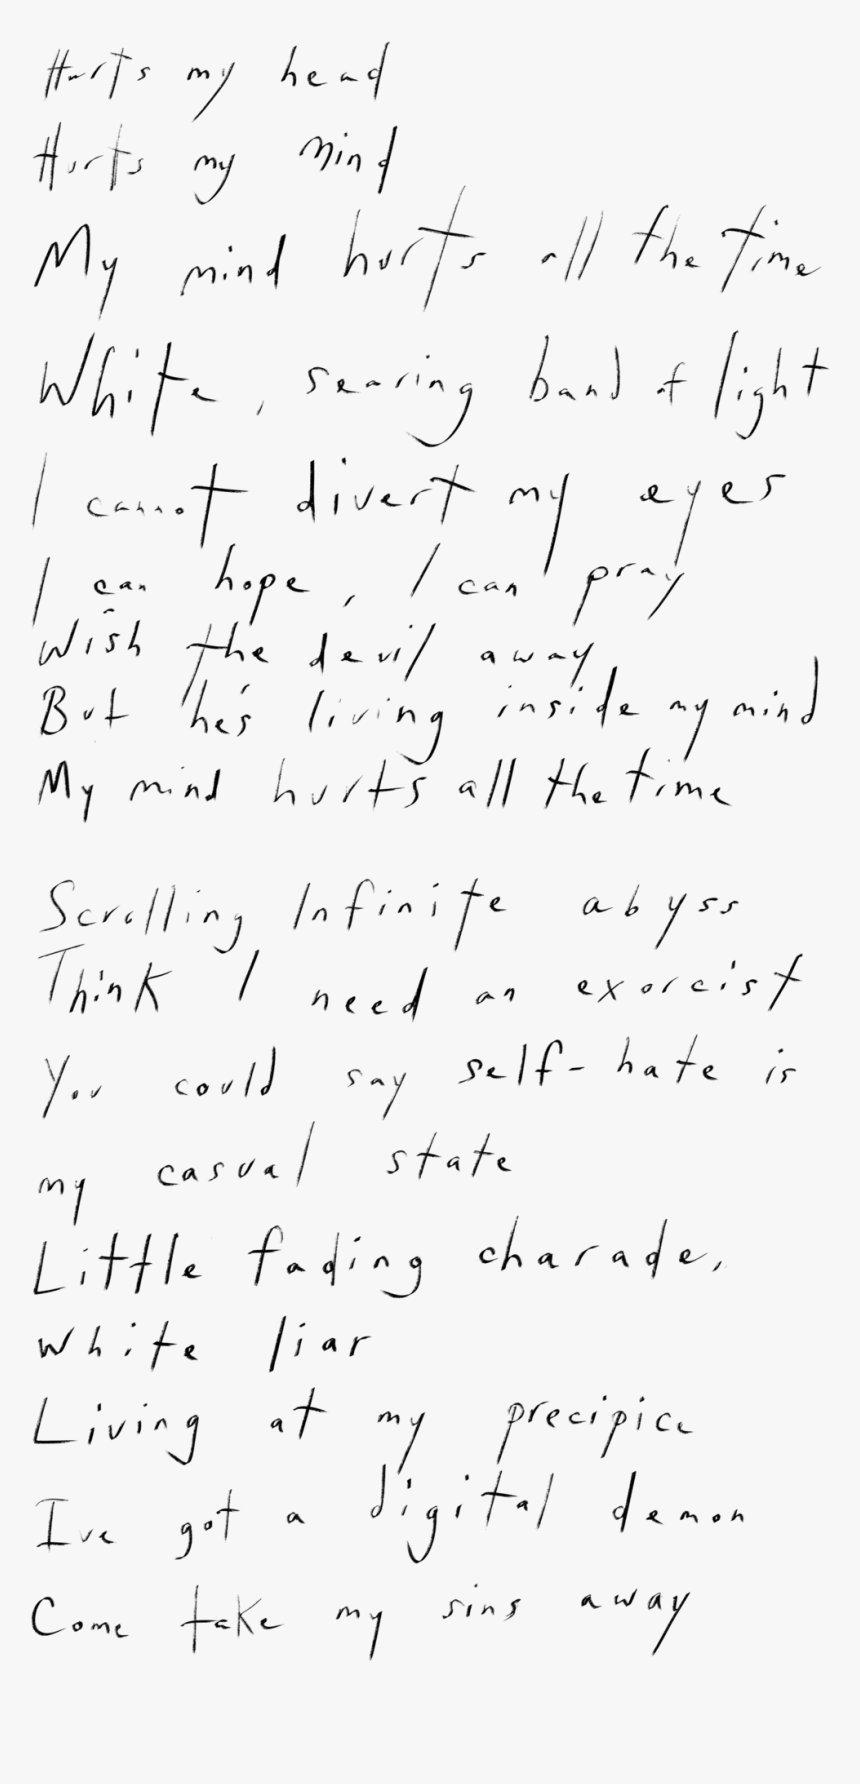 Hurts my head
Hurts my mind
My mind hurts all the time
White, searing band of light
I cannot divert my eyes
I can hope, I can pray
Wish the devil away
But he's living inside my mind
My mind hurts all the time
Scrolling Infinite abyss
Think I need an exorcist
You could say self-hate is
my casual state
Little fading charade,
White liar
Living at my precipice
Ive got a digital demon
Come take my sins away